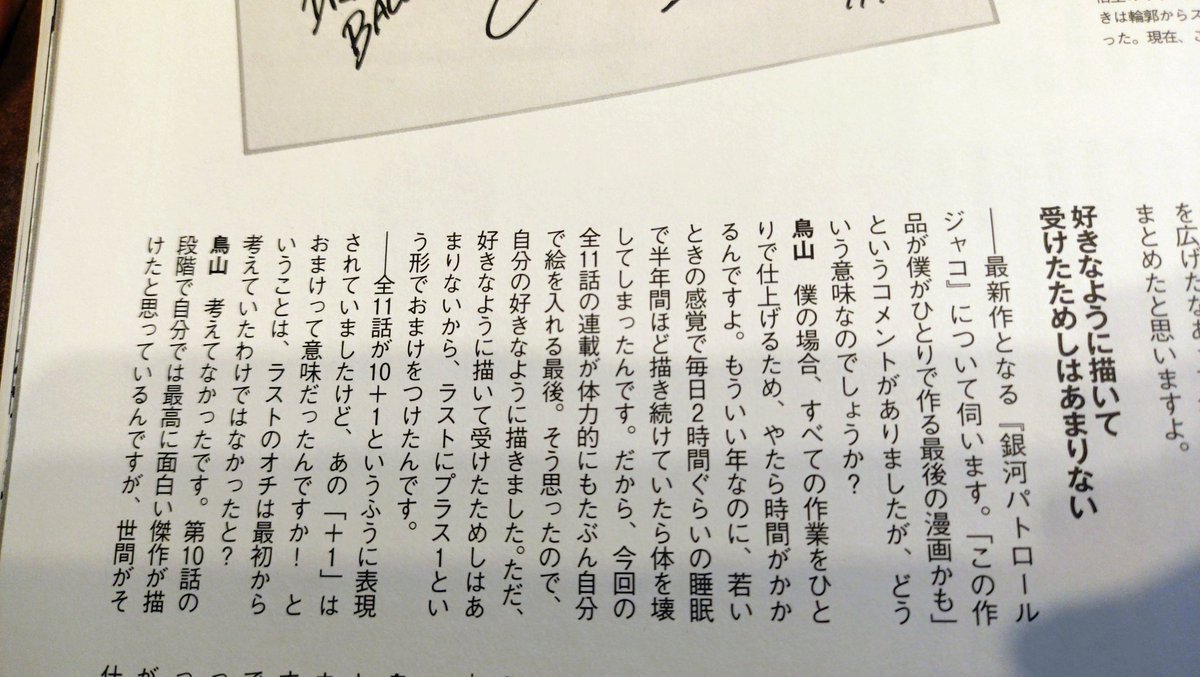 BAC
きは輪郭からス
った。現在、こ
まとめたと思いますよ。
好きなように描いて
受けたためしはあまりない
――最新作となる『銀河パトロール
ジャコ』について伺います。「この作
品が僕がひとりで作る最後の漫画かも」
というコメントがありましたが、どう
いう意味なのでしょうか?
鳥山　僕の場合、すべての作業をひと
りで仕上げるため、やたら時間がかか
るんですよ。もういい年なのに、若い
ときの感覚で毎日2時間ぐらいの睡眠
で半年間ほど描き続けていたら体を壊
してしまったんです。だから、今回の
全11話の連載が体力的にもたぶん自分
で絵を入れる最後。そう思ったので、
自分の好きなように描きました。ただ、
好きなように描いて受けたためしはあ
まりないから、ラストにプラス1とい
う形でおまけをつけたんです。
――全11話が10+1というふうに表現
されていましたけど、あの「+1」は
おまけって意味だったんですか!　と
いうことは、ラストのオチは最初から
考えていたわけではなかったと?
鳥山　考えてなかったです。第10話の
段階で自分では最高に面白い傑作が描
けたと思っているんですが、世間がそ